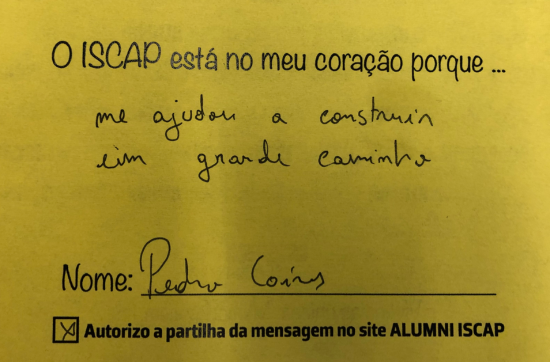 O ISCAP está no meu coração porque ...
me ajudou a construir
um grande caminho
Nome: Pedro
Autorizo a partilha da mensagem no site ALUMNI ISCAP